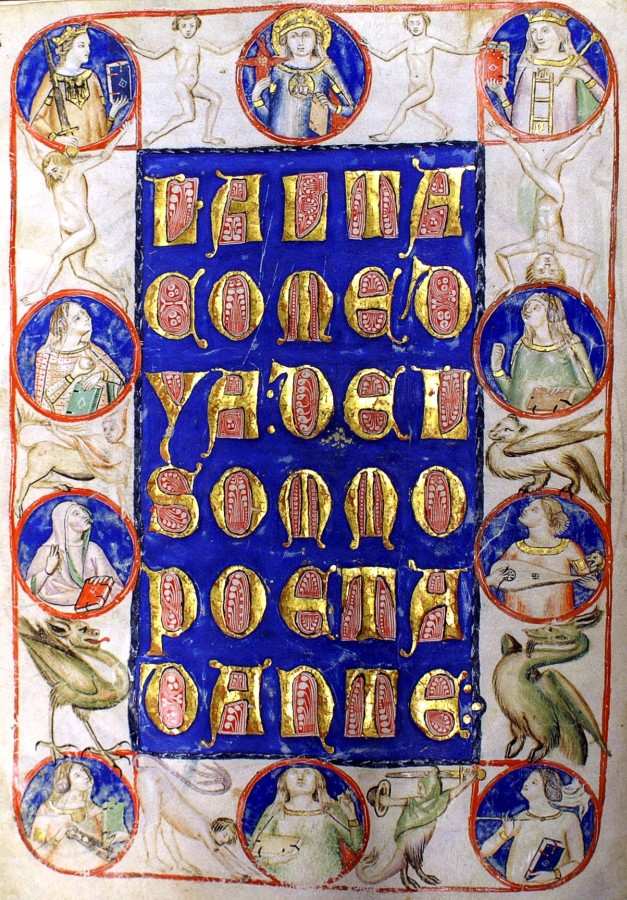 L·ALTA
COMED
YA:DEL
SOMMO
POETA
DANTE